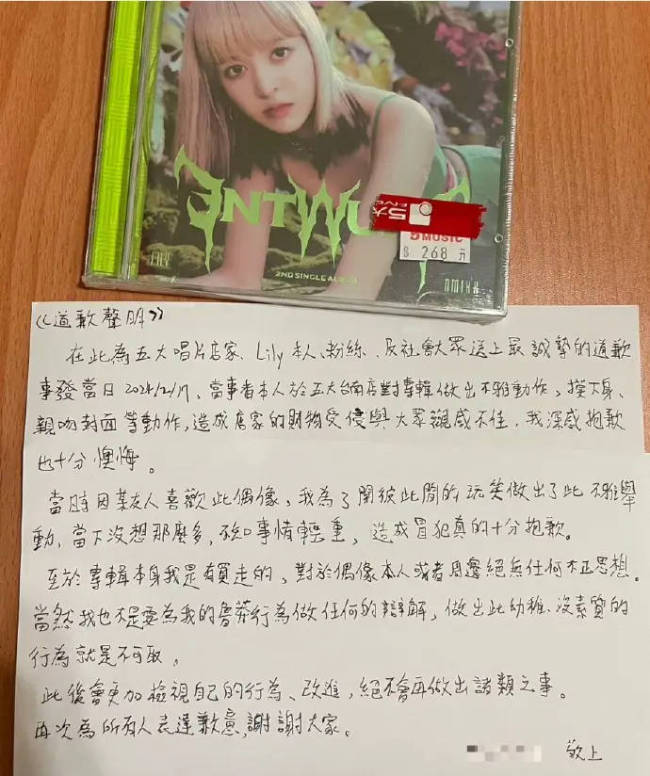 ENTWU
2ND SINGLE ALBUM
LILY
NMIXX
五大
FIVE
5 MUSIC
$ 268 元
《道歉聲明》
在此為五大唱片店家、Lily本人、粉絲、及社會大眾送上最誠摯的道歉
事發當日2024/2/17,當事者本人於五大台南店對專輯做出不雅動作,摸下身、
親吻封面等動作,造成店家的財物受侵與大眾觀感不佳,我深感抱歉
也十分懊悔。
當時因某友人喜歡此偶像,我為了開彼此間的玩笑做出了此不雅舉
動,當下沒想那麼多,不知事情輕重,造成冒犯真的十分抱歉。
至於專輯本身我是有買走的,對於偶像本人或者周邊絕無任何不正思想。
當然我也不是要為我的魯莽行為做任何的辯解,做出此幼稚、沒素質的
行為就是不可取。
此後會更加檢視自己的行為、改進,絕不會再做出諸類之事。
再次為所有人表達歉意,謝謝大家。
敬上